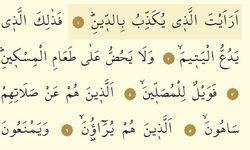 اَرَاَيْتَ الَّذٖي يُكَذِّبُ بِالدّٖينِؕ ١ فَذٰلِكَ الَّذٖي
يَدُعُّ الْيَتٖيمَۙ ٢ وَلَا يَحُضُّ عَلٰى طَعَامِ الْمِسْكٖينِؕ
٣ فَوَيْلٌ لِلْمُصَلّٖينَۙ ٤ اَلَّذٖينَ هُمْ عَنْ صَلَاتِهِمْ
سَاهُونَۙ ٥ اَلَّذٖينَ هُمْ يُرَٓاؤُ۫نَۙ ٦ وَيَمْنَعُونَ